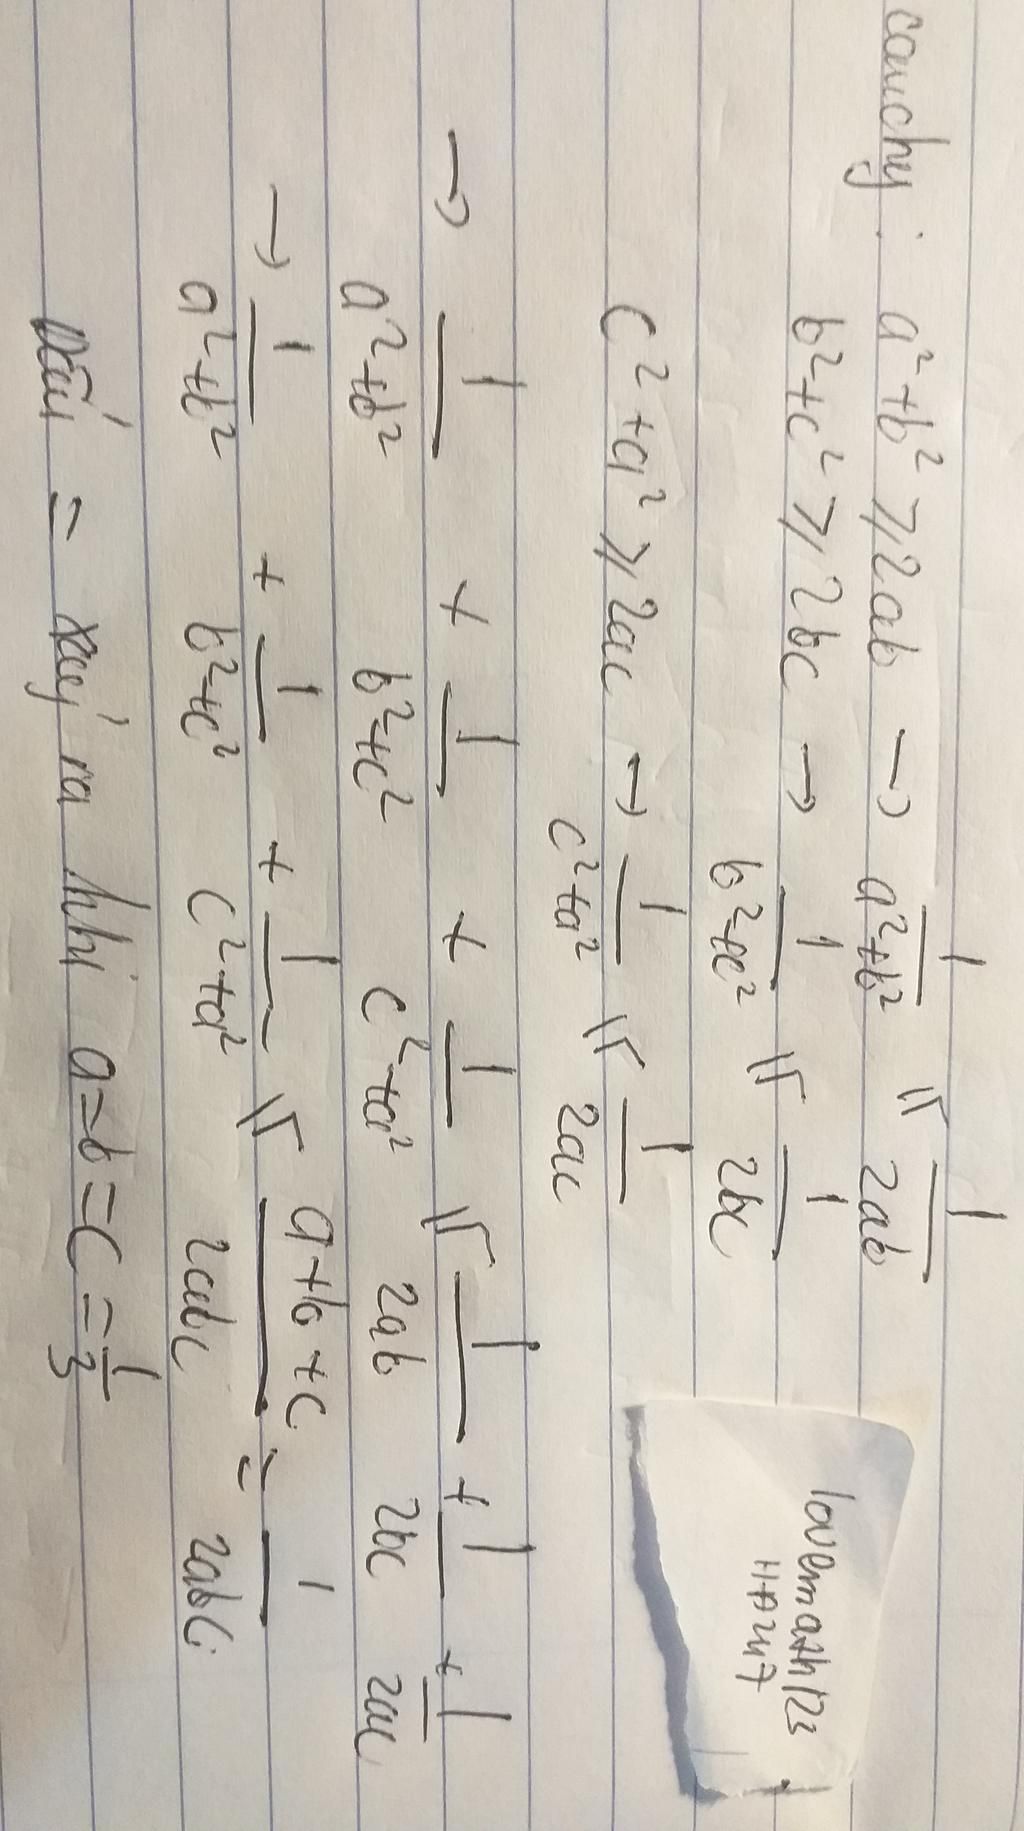 cauchy: a²+b² ≥ 2ab → 1/(a²+b²) ≤ 1/(2ab)
b²+c² ≥ 2bc → 1/(b²+c²) ≤ 1/(2bc)
c²+a² ≥ 2ac → 1/(c²+a²) ≤ 1/(2ac)
→ 1/(a²+b²) + 1/(b²+c²) + 1/(c²+a²) ≤ 1/(2ab) + 1/(2bc) + 1/(2ac)
→ 1/(a²+b²) + 1/(b²+c²) + 1/(c²+a²) ≤ (a+b+c)/(2abc) = 1/(2abc).
Dấu = xảy ra khi a=b=c=1/3
lovemath123